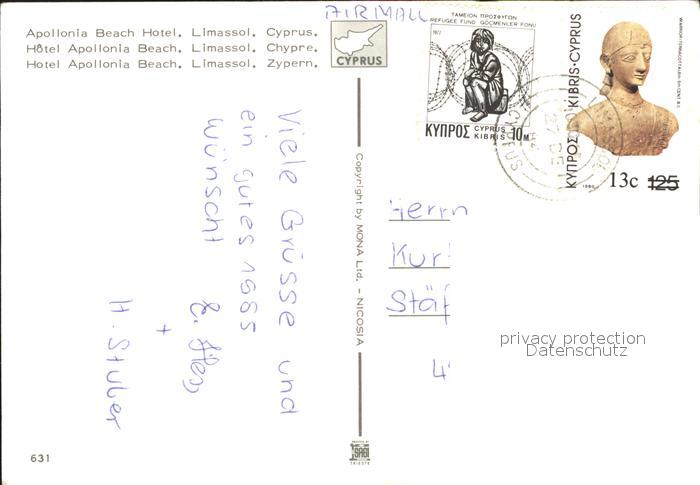 AIRMAIL
Apollonia Beach Hotel, Limassol, Cyprus.
Hôtel Apollonia Beach, Limassol, Chypre.
Hotel Apollonia Beach, Limassol, Zypern.
CYPRUS
ΤΑΜΕΙΟΝ ΠΡΟΣΦΥΓΩΝ
REFUGEE FUND GÖÇMENLER FONU
1977
ΚΥΠΡΟΣ CYPRUS KIBRIS 10M
ΚΥΠΡΟΣ KIBRIS·CYPRUS
WARRIOR-TERRACOTTA
1980
13c 125
CYPRUS
27 DE
Viele Grüsse und
ein gutes 1985
wünscht
+
H. Stuber
Copyright by MONA Ltd. - NICOSIA
Herrn
Kur
Stäf
privacy protection
Datenschutz
631
SAGI
TRIESTE